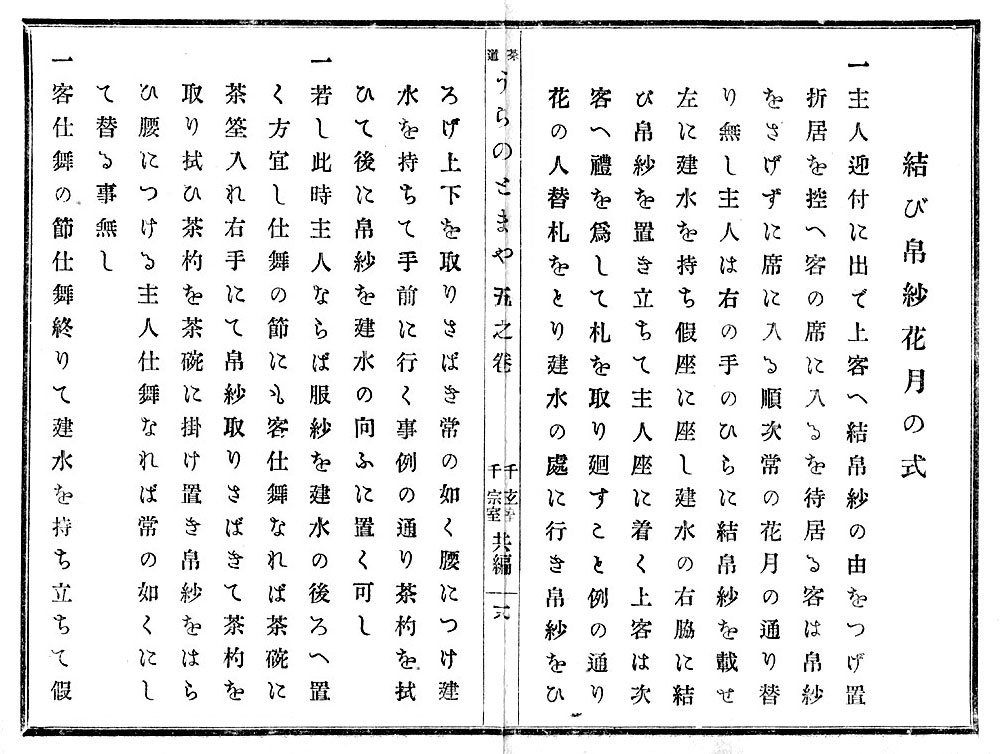 結び帛紗花月の式
一主人迎付に出で上客へ結帛紗の由をつげ置
折居を控へ客の席に入るを待居る客は帛紗
をさげずに席に入る順次常の花月の通り替
り無し主人は右の手のひらに結帛紗を載せ
左に建水を持ち假座に座し建水の右脇に結
び帛紗を置き立ちて主人座に着く上客は次
客へ禮を爲して札を取り廻すこと例の通り
花の人替札をとり建水の處に行き帛紗をひ
茶道
うらのとまや五之卷
千玄
千宗室
共編
ろげ上下を取りさばき常の如く腰につけ建
水を持ちて手前に行く事例の通り茶杓を拭
ひて後に帛紗を建水の向ふに置く可し
一若し此時主人ならば服紗を建水の後ろへ置
く方宜し仕舞の節にも客仕舞なれば茶碗に
茶筌入れ右手にて帛紗取りさばきて茶杓を
取り拭ひ茶杓を茶碗に掛け置き帛紗をはら
ひ腰につける主人仕舞なれば常の如くにし
て替る事無し
一客仕舞の節仕舞終りて建水を持ち立ちて假